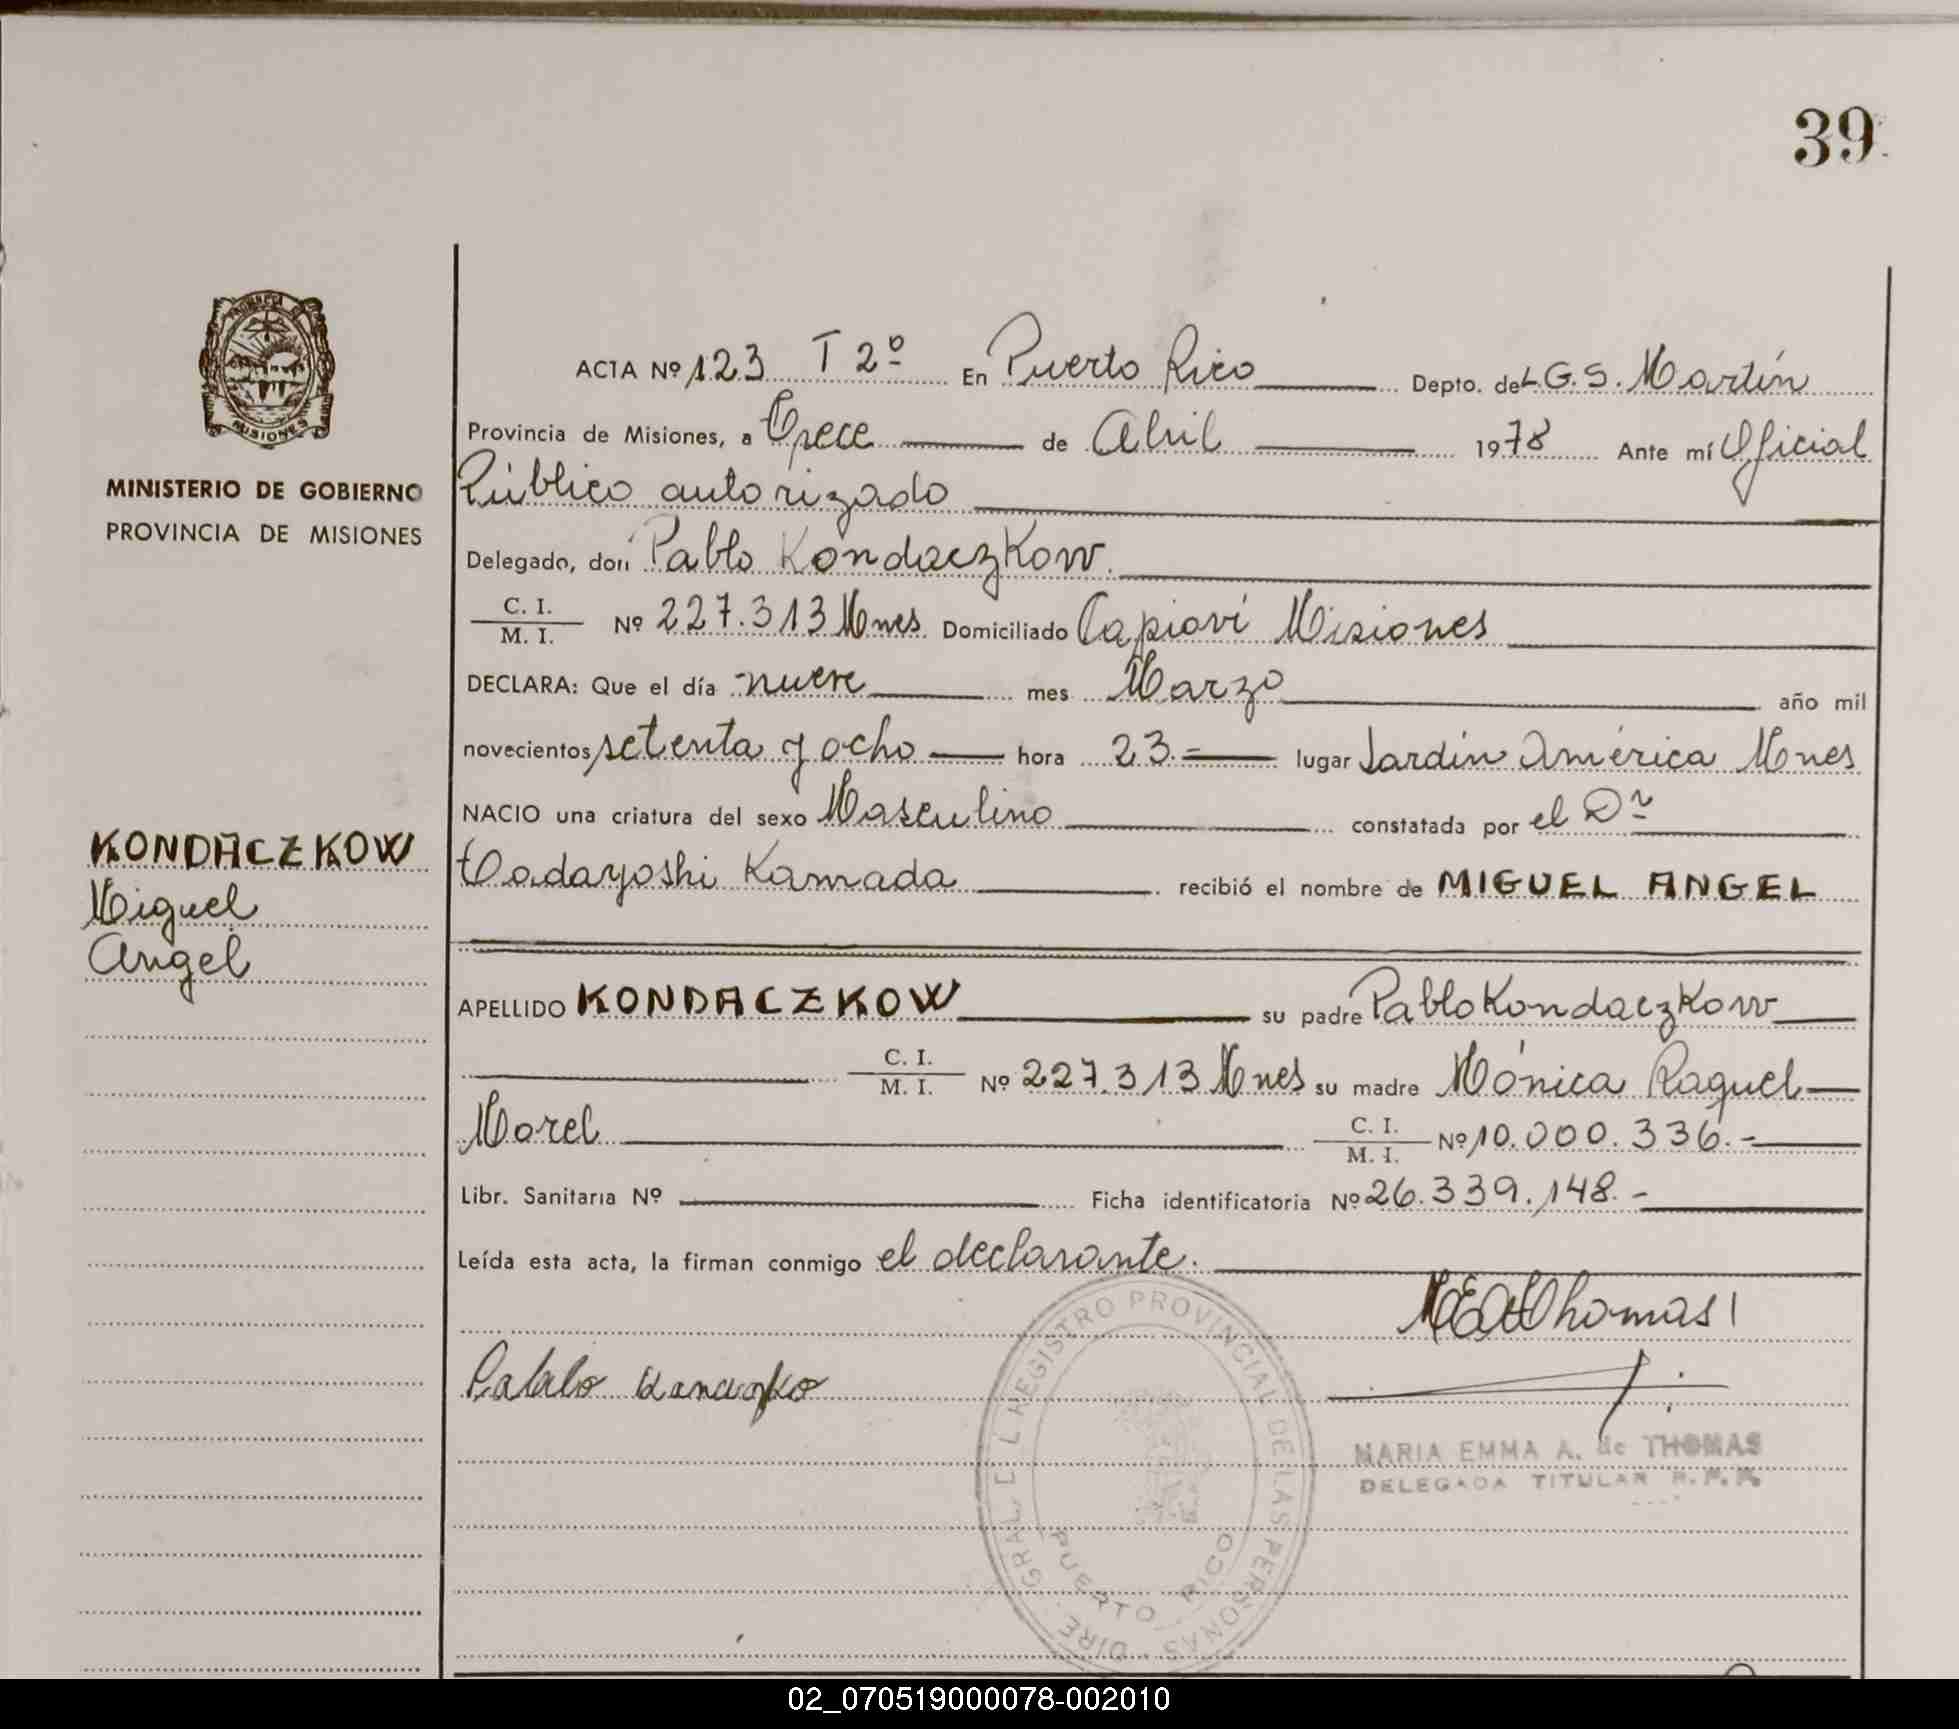 39
MISIONES
MINISTERIO DE GOBIERNO
PROVINCIA DE MISIONES
KONDACZKOW
Miguel
Angel
ACTA Nº 123 T 2º En Puerto Rico Depto. de L.G.S. Martín
Provincia de Misiones, a Trece de Abril 1978 Ante mí Oficial
Público autorizado
Delegado, don Pablo Kondaczkow.
C. I.
M. I. Nº 227.313 Mnes. Domiciliado Capioví Misiones
DECLARA: Que el día nueve mes Marzo año mil
novecientos setenta y ocho hora 23.- lugar Jardín América Mnes
NACIO una criatura del sexo Masculino constatada por el Dr
Tadayoshi Kamada recibió el nombre de MIGUEL ANGEL
APELLIDO KONDACZKOW su padre Pablo Kondaczkow
C. I.
M. I. Nº 227.313 Mnes su madre Mónica Raquel
Morel C. I.
M. I. Nº 10.000.336.-
Libr. Sanitaria Nº Ficha identificatoria Nº 26.339.148.-
Leída esta acta, la firman conmigo el declarante.
MEAThomas
Pablo
DIRE. GRAL. DEL REGISTRO PROVINCIAL DE LAS PERSONAS
PUERTO RICO
MARIA EMMA A. de THOMAS
DELEGADA TITULAR R. P. P.
02_070519000078-002010